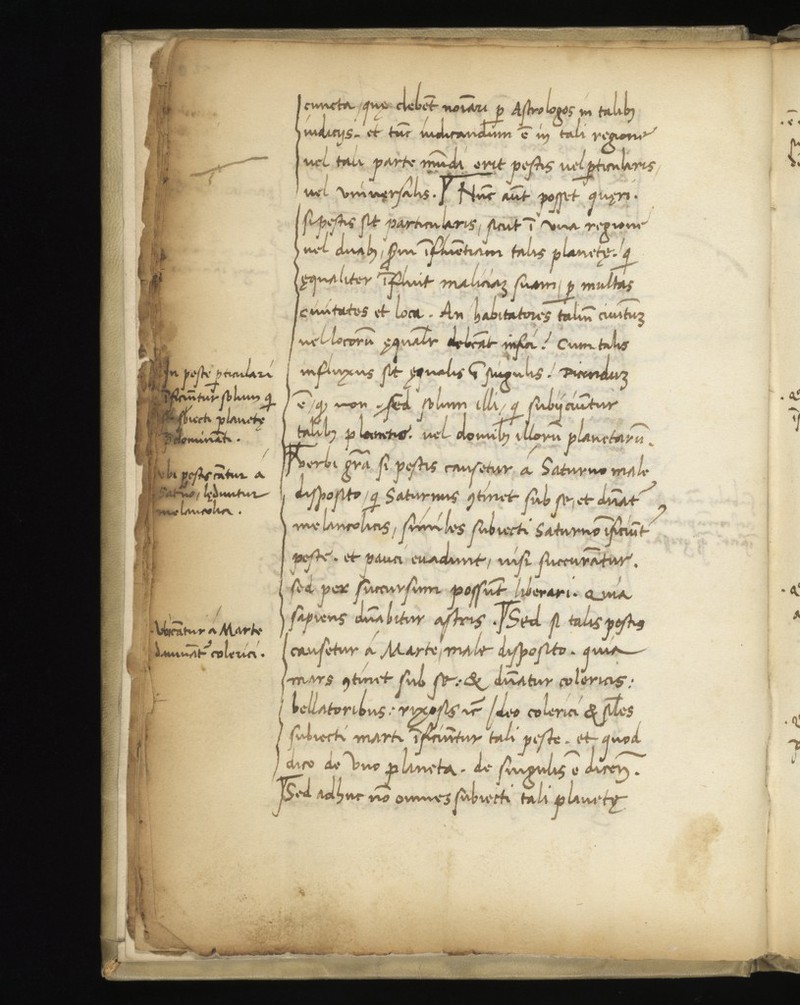 cuncta, quę debēt noīari p̄ Astrologos in talibꝫ
iudicijs. et tūc iudicandum ē in tali regione
uel tali parte mūdi erit pestis uel ꝑticularis,
uel vniuersalis. Nūc aūt posset quęri.
si pestis sit particularis, sicut ī vna regione
uel duabꝫ, ꝓm īfluentiam talis planetę. q̄
ęqualiter īfluit maliciaꝫ suam, ꝑ multas
ciuitates et loca. An habitatores taliū ciuitatūꝫ
uel locorū ęqual'r debeāt infici? Cum talis
influxus sit ęqualis ī singulis? Dicenduꝫ
ē, qꝫ non. sed solum illi, q̄ subijciuntur
talibꝫ planetis. uel domibꝫ illorū planetarū.
verbi grā si pestis causetur á Saturno male
disposito, q̄ Saturnus ꝯtinet sub se, et dn̄at᷑
melancolicis, similes subiecti Saturno īficiūt᷑
peste. et pauci euadunt, nisi succurātur.
sed per succursum possūt liberari. Quia
sapiens dn̄abitur astris. Sed si talis pestis
causetur á Marte, male disposito. quia
mars ꝯtinet sub se: & dn̄atur colericis:
bellatoribus: rixosis ꝛc̄ Ideo colerici & sīles
subiecti marti īficiūtur tali peste. et quod
dico de vno planeta. de singulis ē dicēn.
Sed adhuc nō omnes subiecti tali planetę
In peste ꝑticulari
īficiūtur solum q̄
sūt sbiecti planetę
p̄domināti.
vbi pestis cāatur á
Satn̄o, lęduntur
melancolici.
Vbi cāatur á Marte
damnāt᷑ colerici.